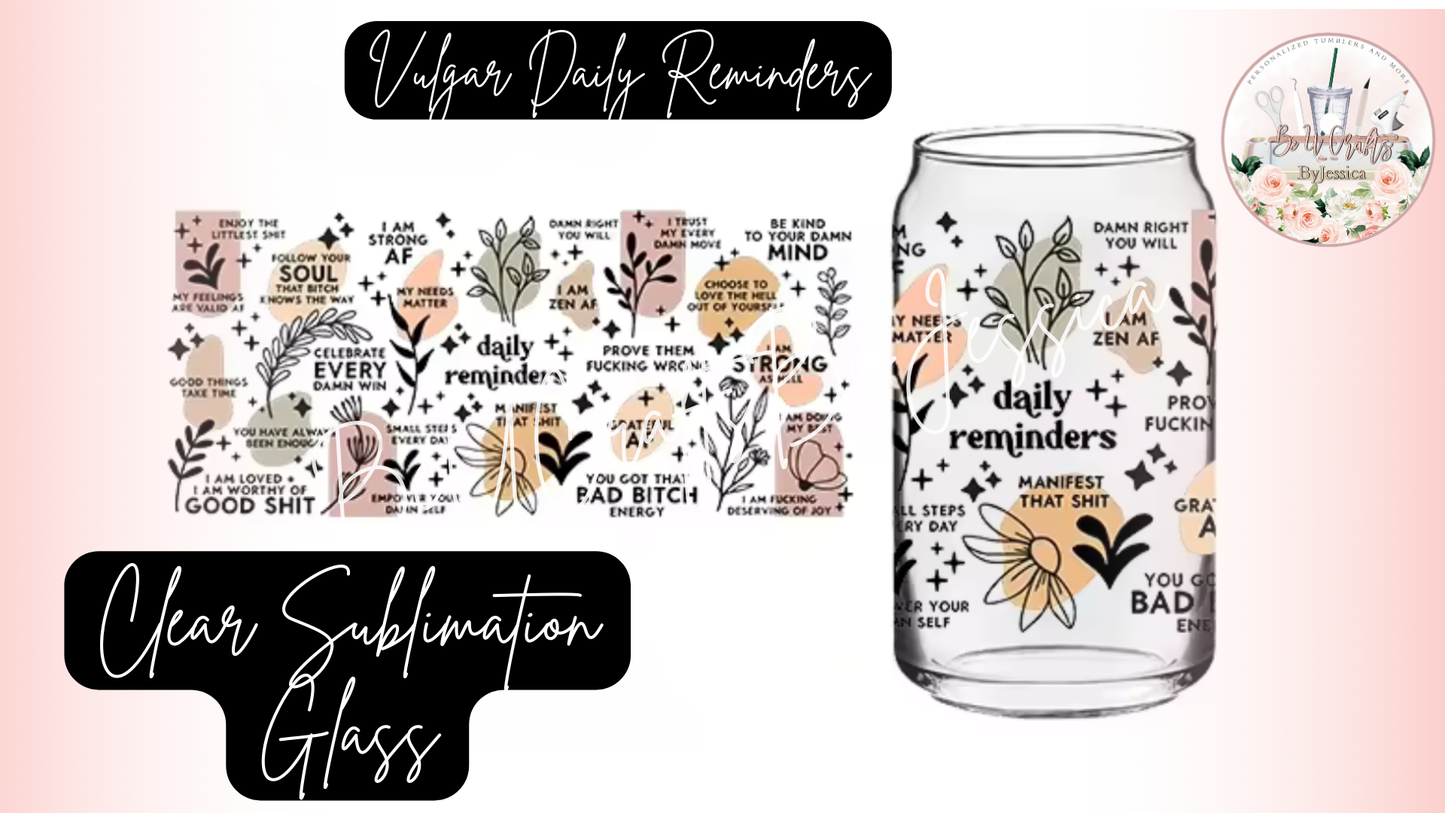 Vulgar Daily Reminders
PERSONALIZED TUMBLERS AND MORE
Be U Crafts
ByJessica
ENJOY THE
LITTLEST SHIT
FOLLOW YOUR
SOUL
THAT BITCH
KNOWS THE WAY
MY FEELINGS
ARE VALID AF
I AM
STRONG
AF
MY NEEDS
MATTER
DAMN RIGHT
YOU WILL
I AM
ZEN AF
I TRUST
MY EVERY
DAMN MOVE
BE KIND
TO YOUR DAMN
MIND
CHOOSE TO
LOVE THE HELL
OUT OF YOURSELF
CELEBRATE
EVERY
DAMN WIN
daily
reminders
PROVE THEM
FUCKING WRONG
I AM
STRONG
AS HELL
GOOD THINGS
TAKE TIME
YOU HAVE ALWAYS
BEEN ENOUGH
SMALL STEPS
EVERY DAY
MANIFEST
THAT SHIT
GRATEFUL
AF
I AM DOING
MY BEST
I AM LOVED +
I AM WORTHY OF
GOOD SHIT
EMPOWER YOUR
DAMN SELF
YOU GOT THAT
BAD BITCH
ENERGY
I AM FUCKING
DESERVING OF JOY
M
NG
F
DAMN RIGHT
YOU WILL
MY NEEDS
MATTER
I AM
ZEN AF
daily
reminders
PROV
FUCKIN
MANIFEST
THAT SHIT
LL STEPS
ERY DAY
GRAT
A
WER YOUR
AN SELF
YOU GO
BAD
ENE
Jessica
Clear Sublimation
Glass